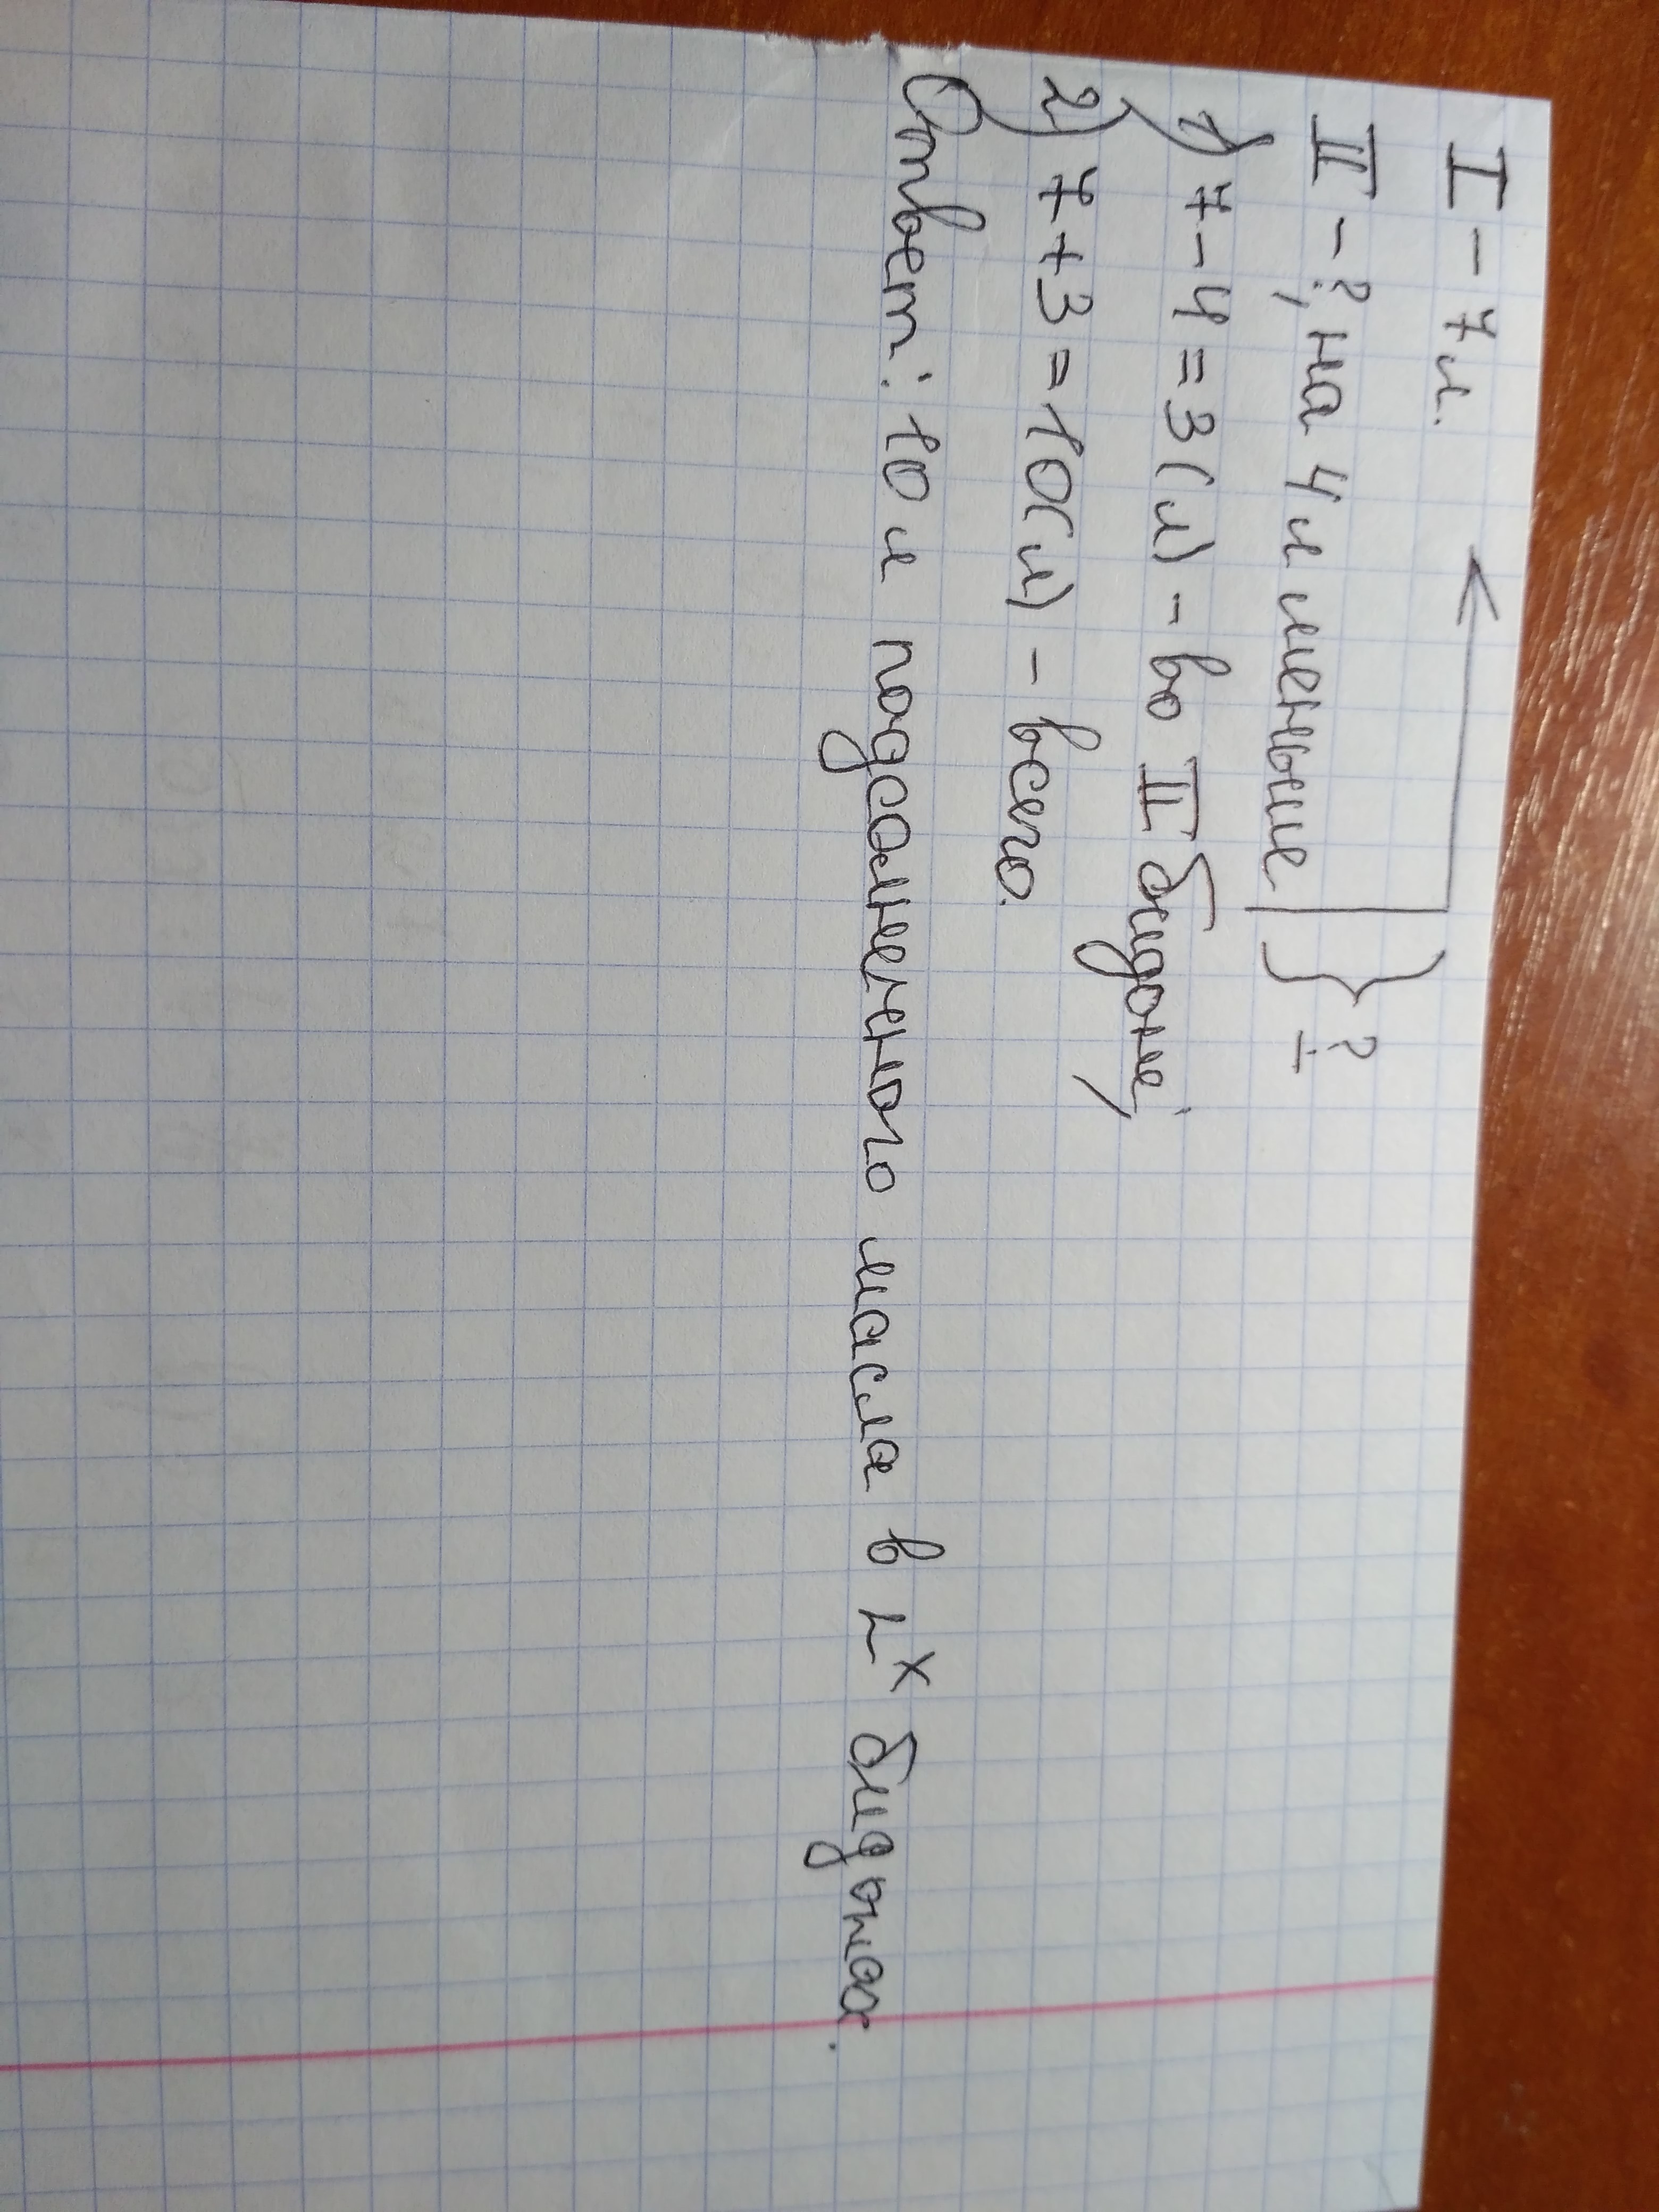 I - 7 л.
II - ?, на 4 л меньше } ?
1) 7 - 4 = 3 (л) - во II бидоне;
2) 7 + 3 = 10 (л) - всего.
Ответ: 10 л подсолненного масла в 2х бидонах.